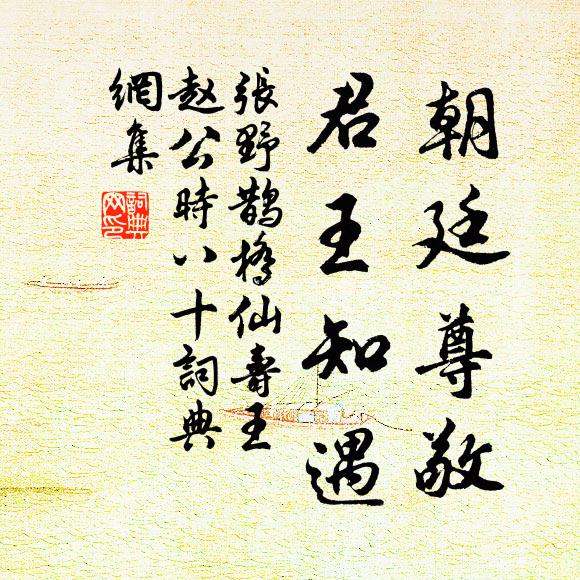 朝廷尊敬
君王知遇
張野鵲橋仙壽王
赵公時八十詞典
網集
詞典
网印